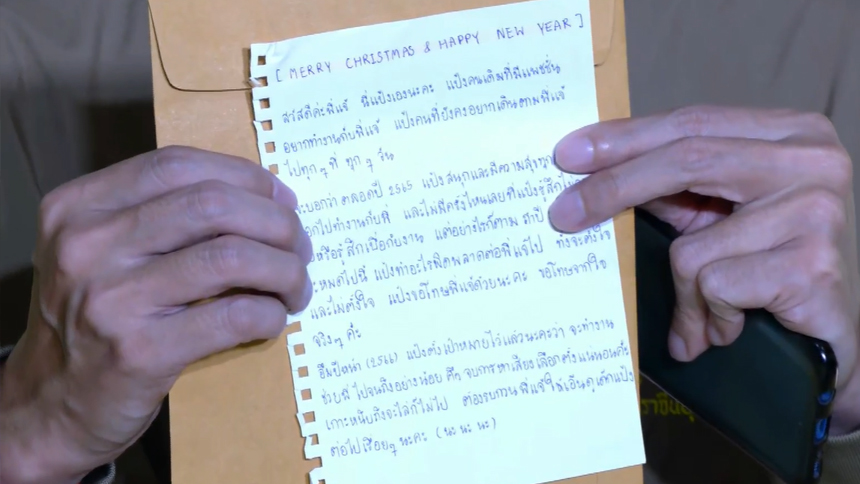 [ MERRY CHRISTMAS & HAPPY NEW YEAR ]
สวัสดีค่ะพี่แจ้ นี่แป้งเองนะคะ แป้งคนเดิมที่มีแพชชั่น
อยากทำงานกับพี่แจ้ แป้งคนที่ยังคงอยากเดินตามพี่แจ้
ไปทุก ๆ ที่ ทุก ๆ วัน
บอกว่า ตลอดปี 2565 แป้งสนุกและมีความสุขทุก
ไปทำงานกับพี่ และไม่มีครั้งไหนเลยที่แป้งรู้สึก
หรือรู้สึกเบื่อกับงาน แต่อย่างไรก็ตาม
หมดไปนี้ แป้งทำอะไรผิดพลาดต่อพี่แจ้ไป ทั้งจะตั้งใจ
และไม่ตั้งใจ แป้งขอโทษพี่แจ้ด้วยนะคะ ขอโทษจากใจ
จริงๆ ค่ะ
ปีหน้า (2566) แป้งตั้งเป้าหมายไว้แล้วนะคะว่า จะทำงาน
ช่วยพี่ไปจนถึงอย่างน้อย ก็ๆ จบการหาเสียงเลือกตั้งแน่นอนค่ะ
เกาะหนึบถึงจะไล่ก็ไม่ไป ต้องรบกวนพี่แจ้ให้เอ็นดูเด็กแป้ง
ต่อไปเรื่อยๆ นะคะ (นะ นะ นะ)